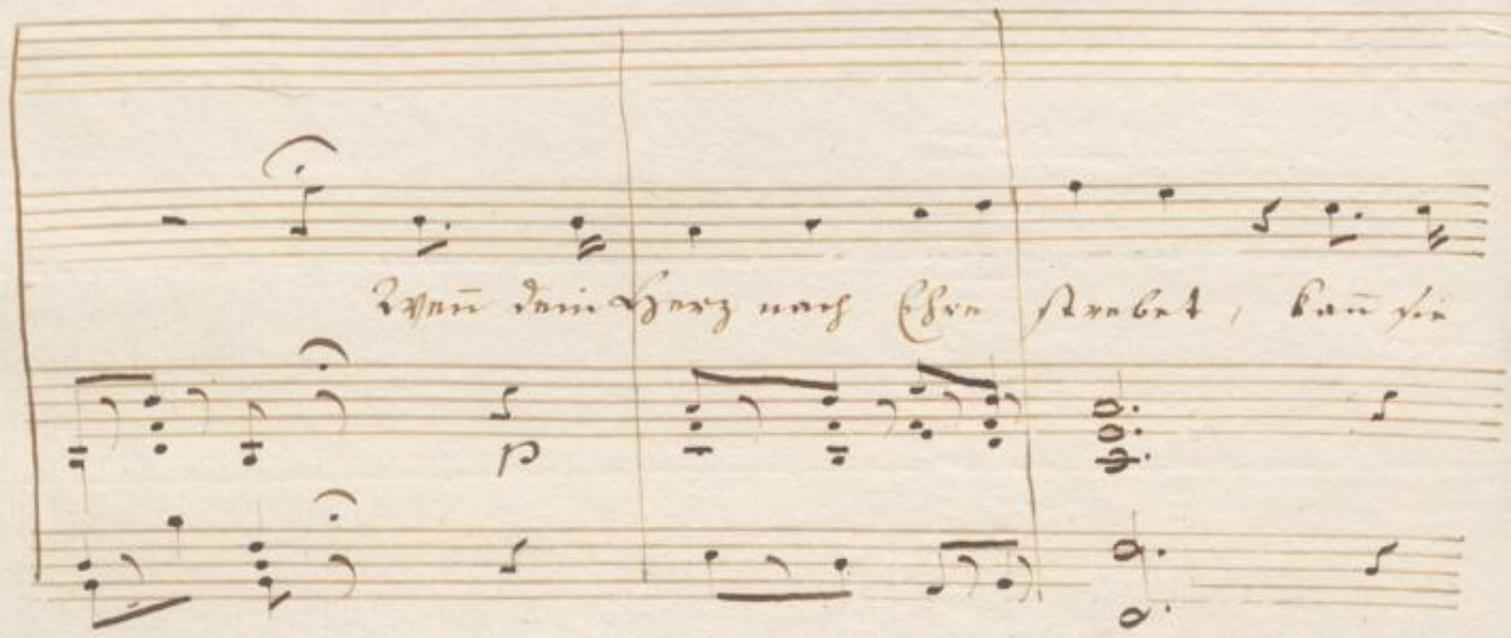 Wen̄ dein Herz nach Ehre strebet, kan̄ sie
p